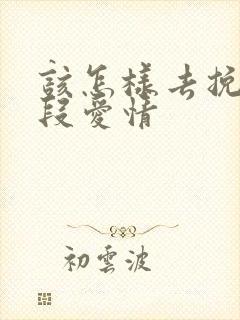 該怎樣去挽
段愛情
初雲波